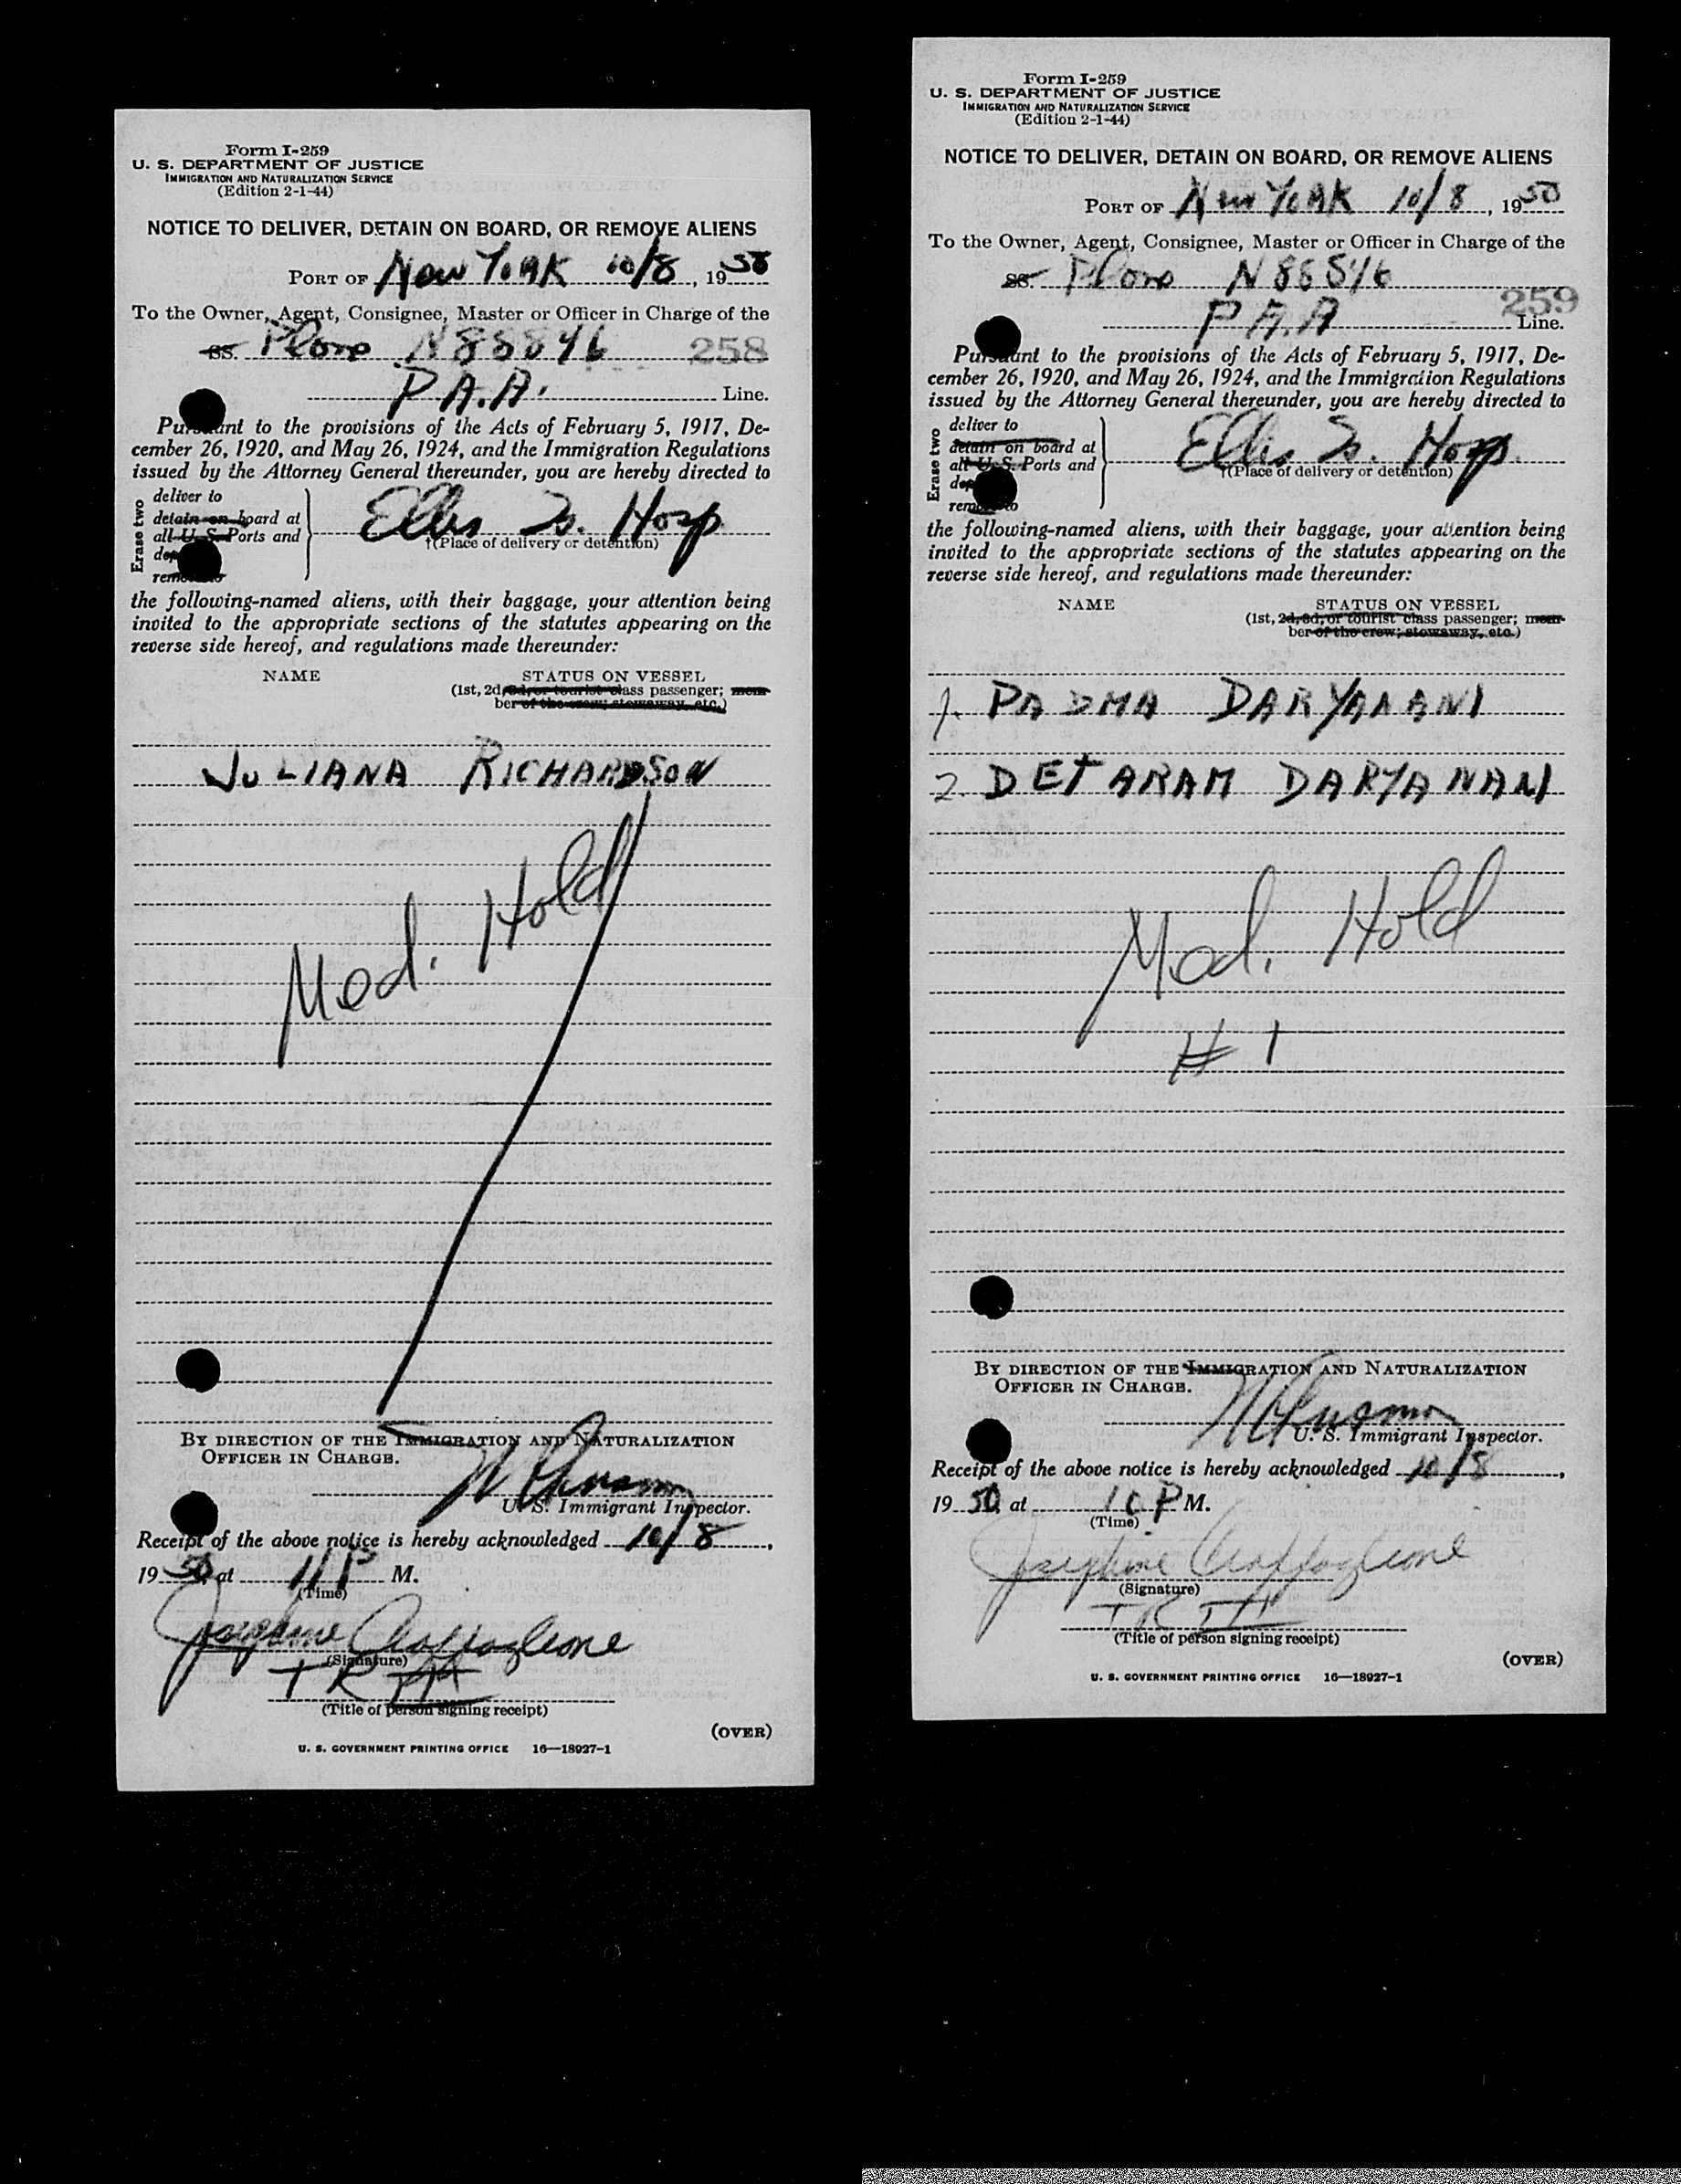 Form I-259
U. S. DEPARTMENT OF JUSTICE
IMMIGRATION AND NATURALIZATION SERVICE
(Edition 2-1-44)
NOTICE TO DELIVER, DETAIN ON BOARD, OR REMOVE ALIENS
PORT OF New York 10/8, 1950
To the Owner, Agent, Consignee, Master or Officer in Charge of the
SS. Plane N88846 258
P.A.A. Line.
Pursuant to the provisions of the Acts of February 5, 1917, De-
cember 26, 1920, and May 26, 1924, and the Immigration Regulations
issued by the Attorney General thereunder, you are hereby directed to
Erase two
deliver to
detain on board at
all U. S. Ports and
remove to
Ellis Is. Hosp
†(Place of delivery or detention)
the following-named aliens, with their baggage, your attention being
invited to the appropriate sections of the statutes appearing on the
reverse side hereof, and regulations made thereunder:
NAME STATUS ON VESSEL
(1st, 2d, 3d, or tourist class passenger; mem-
ber of the crew; stowaway, etc.)
JULIANA RICHARDSON
Med. Hold
BY DIRECTION OF THE IMMIGRATION AND NATURALIZATION
OFFICER IN CHARGE.
U. S. Immigrant Inspector.
Receipt of the above notice is hereby acknowledged 10/8,
1950, at 11 P M.
(Time)
Josephine
(Signature)
TR
(Title of person signing receipt)
(OVER)
U. S. GOVERNMENT PRINTING OFFICE 16—18927-1
Form I-259
U. S. DEPARTMENT OF JUSTICE
IMMIGRATION AND NATURALIZATION SERVICE
(Edition 2-1-44)
NOTICE TO DELIVER, DETAIN ON BOARD, OR REMOVE ALIENS
PORT OF New York 10/8, 1950
To the Owner, Agent, Consignee, Master or Officer in Charge of the
SS. Plane N88846
259
P.A.A Line.
Pursuant to the provisions of the Acts of February 5, 1917, De-
cember 26, 1920, and May 26, 1924, and the Immigration Regulations
issued by the Attorney General thereunder, you are hereby directed to
Erase two
deliver to
detain on board at
all U. S. Ports and
remove to
Ellis Is. Hosp.
†(Place of delivery or detention)
the following-named aliens, with their baggage, your attention being
invited to the appropriate sections of the statutes appearing on the
reverse side hereof, and regulations made thereunder:
NAME STATUS ON VESSEL
(1st, 2d, 3d, or tourist class passenger; mem-
ber of the crew; stowaway, etc.)
1. PADMA DARYANANI
2. DETARAM DARYANANI
Med. Hold
# 1
BY DIRECTION OF THE IMMIGRATION AND NATURALIZATION
OFFICER IN CHARGE.
U. S. Immigrant Inspector.
Receipt of the above notice is hereby acknowledged 10/8,
1950, at 10 P M.
(Time)
Josephine
(Signature)
TR
(Title of person signing receipt)
(OVER)
U. S. GOVERNMENT PRINTING OFFICE 16—18927-1